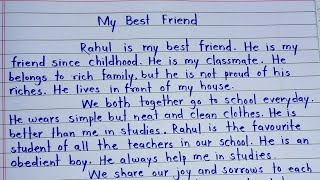 My Best Friend
Rahul is my best friend. He is my
friend since childhood. He is my classmate. He
belongs to rich family, but he is not proud of his
riches. He lives in front of my house.
We both together go to school everyday.
He wears simple but neat and clean clothes. He is
better than me in studies. Rahul is the favourite
student of all the teachers in our school. He is an
obedient boy. He always help me in studies.
We share our joy and sorrows to each